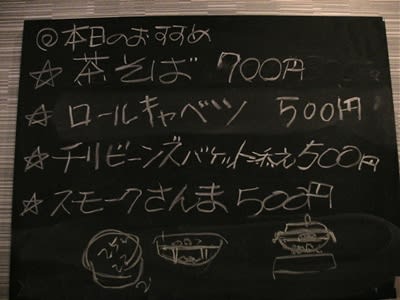 ◎本日のおすすめ
☆茶そば 700円
☆ロールキャベツ 500円
☆チリビーンズバケット添え500円
☆スモークさんま500円